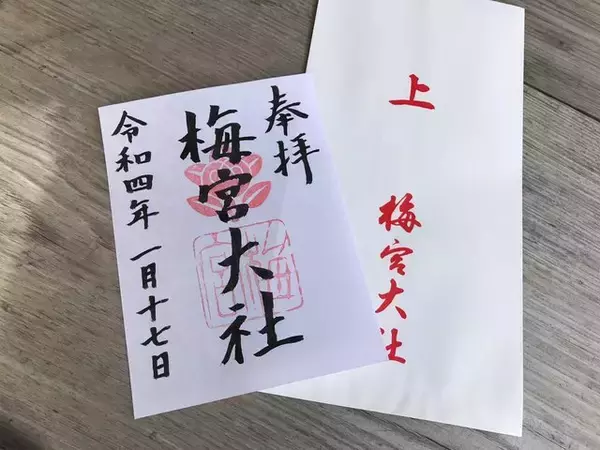 奉拝
梅宮大社
令和四年 一月十七日
上
梅宮大社